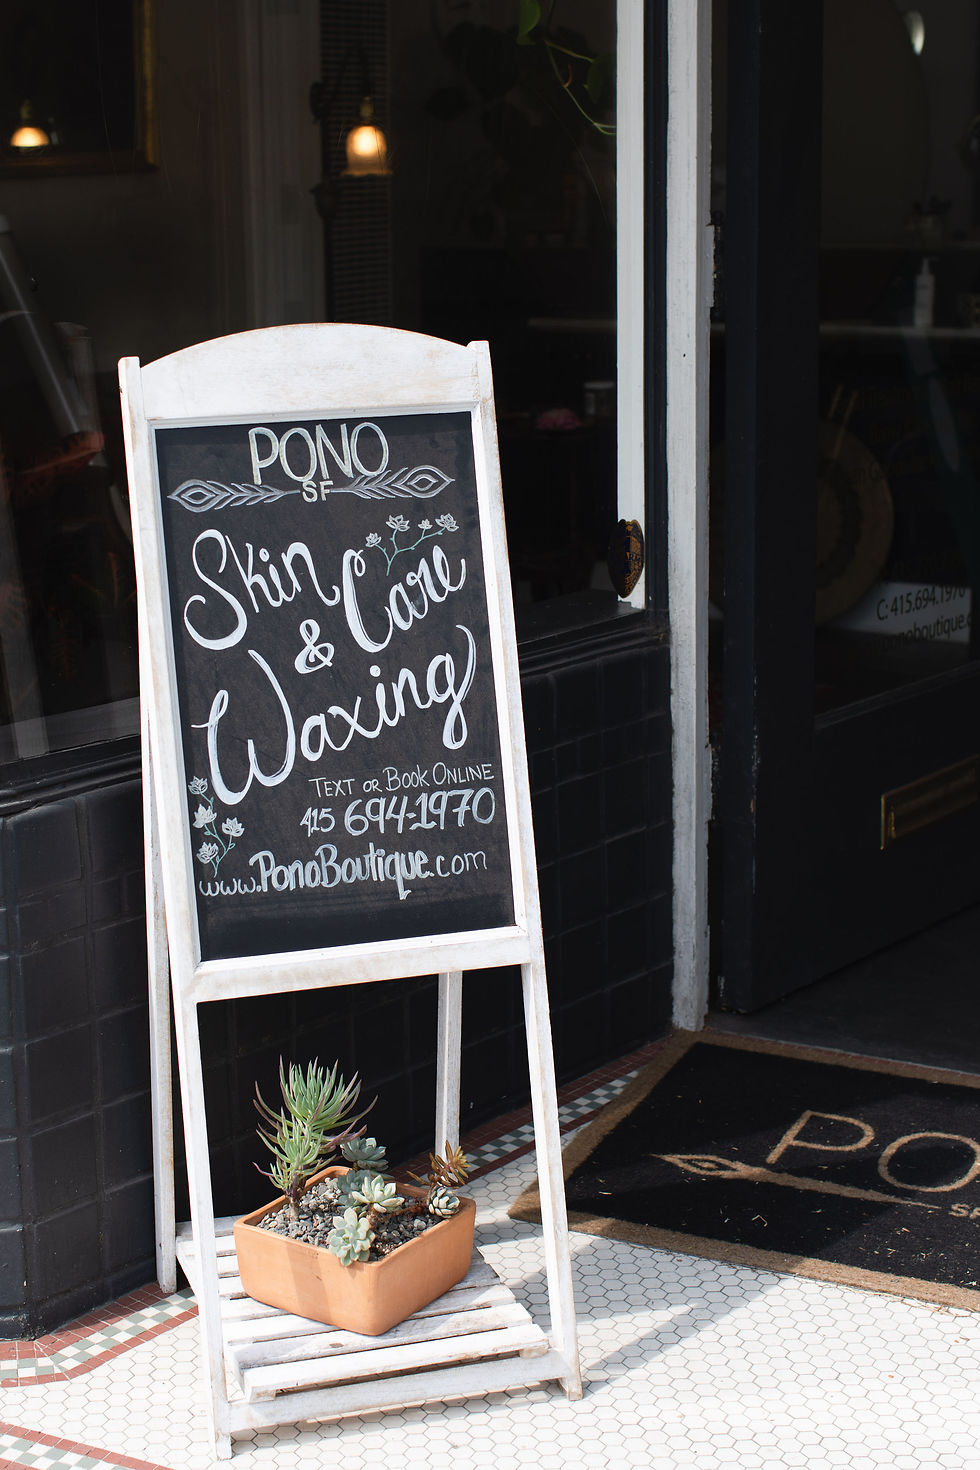 PONO
SF
Skin Care
&
Waxing
TEXT OR BOOK ONLINE
415 694-1970
www.PonoBoutique.com
C: 415.694.1970
ponoboutique.c
PO
S